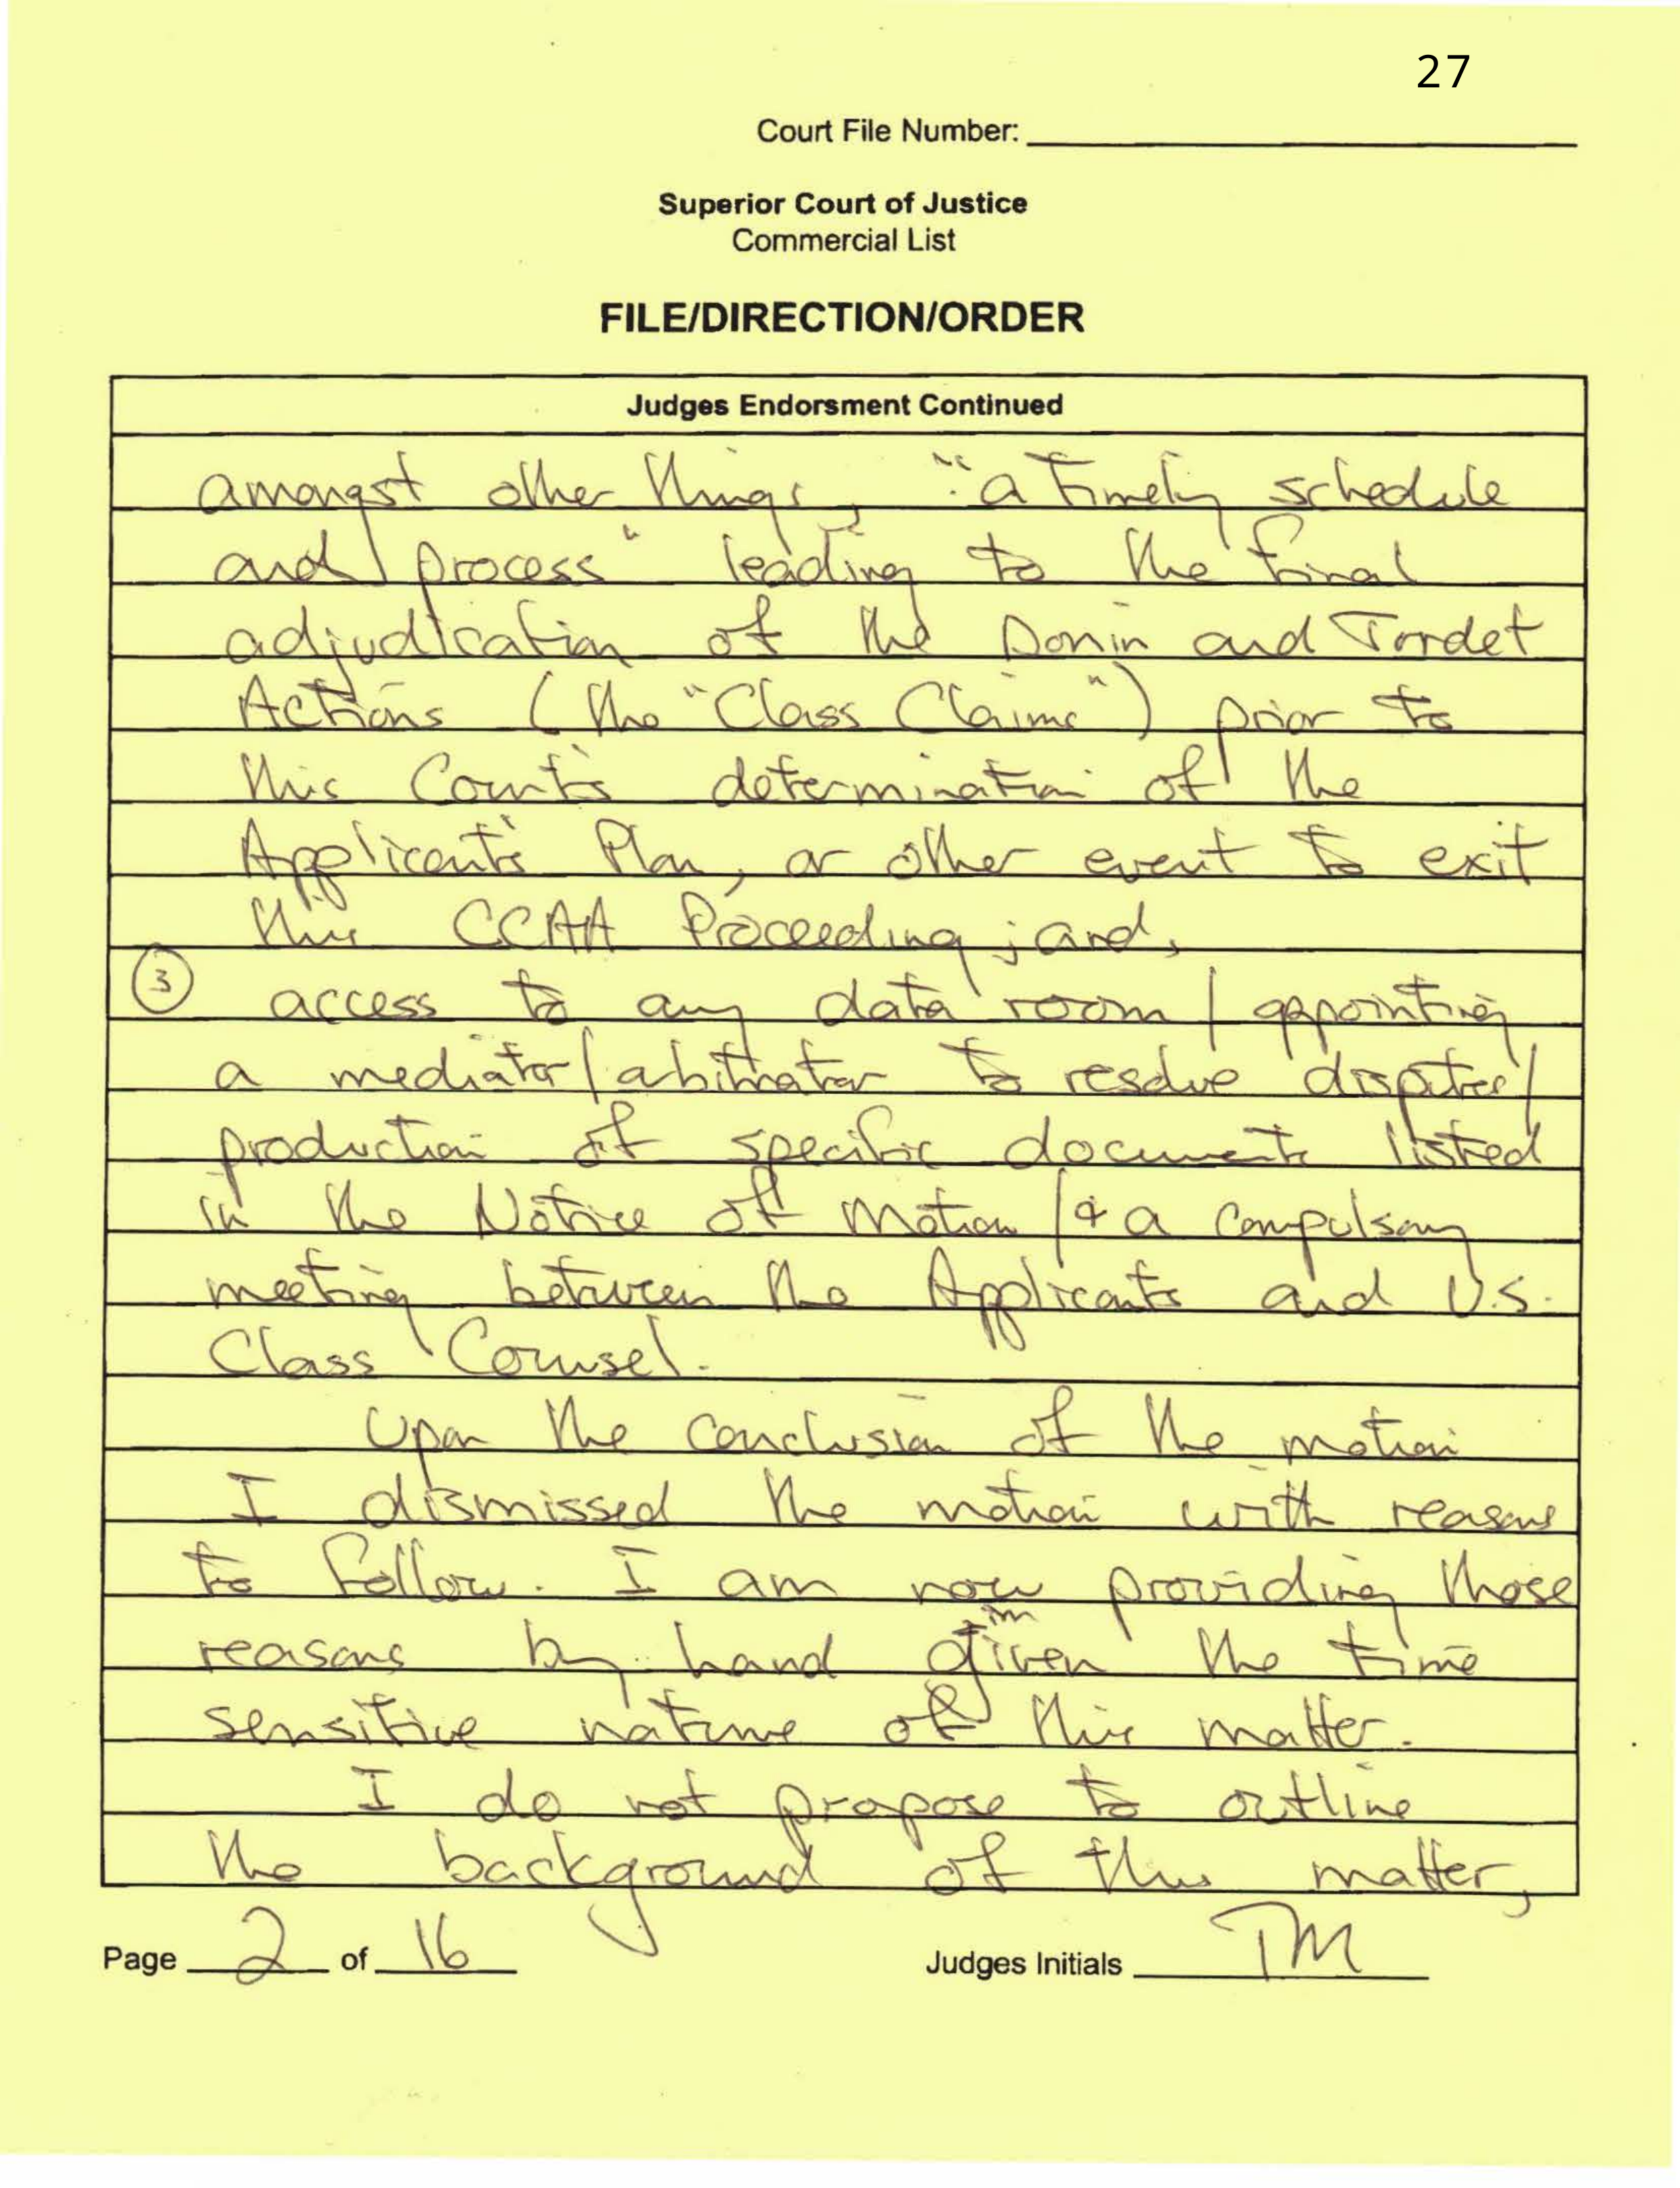 27
Court File Number:
Superior Court of Justice
Commercial List
FILE/DIRECTION/ORDER
Judges Endorsment Continued
amongst other things, "a timely schedule
and process" leading to the final
adjudication of the Donin and Jordet
Actions (the "Class Claims") prior to
this Court's determination of the
Applicant's Plan, or other event to exit
this CCAA Proceeding; and,
③ access to any data room / appointing
a mediator/arbitrator to resolve disputes/
production of specific documents listed
in the Notice of Motion / & a compulsory
meeting between the Applicants and U.S.
Class Counsel.
Upon the conclusion of the motion
I dismissed the motion with reasons
to follow. I am now providing those
reasons by hand given the time
sensitive nature of this matter.
I do not propose to outline
the background of this matter,
Page 2 of 16 Judges Initials TM